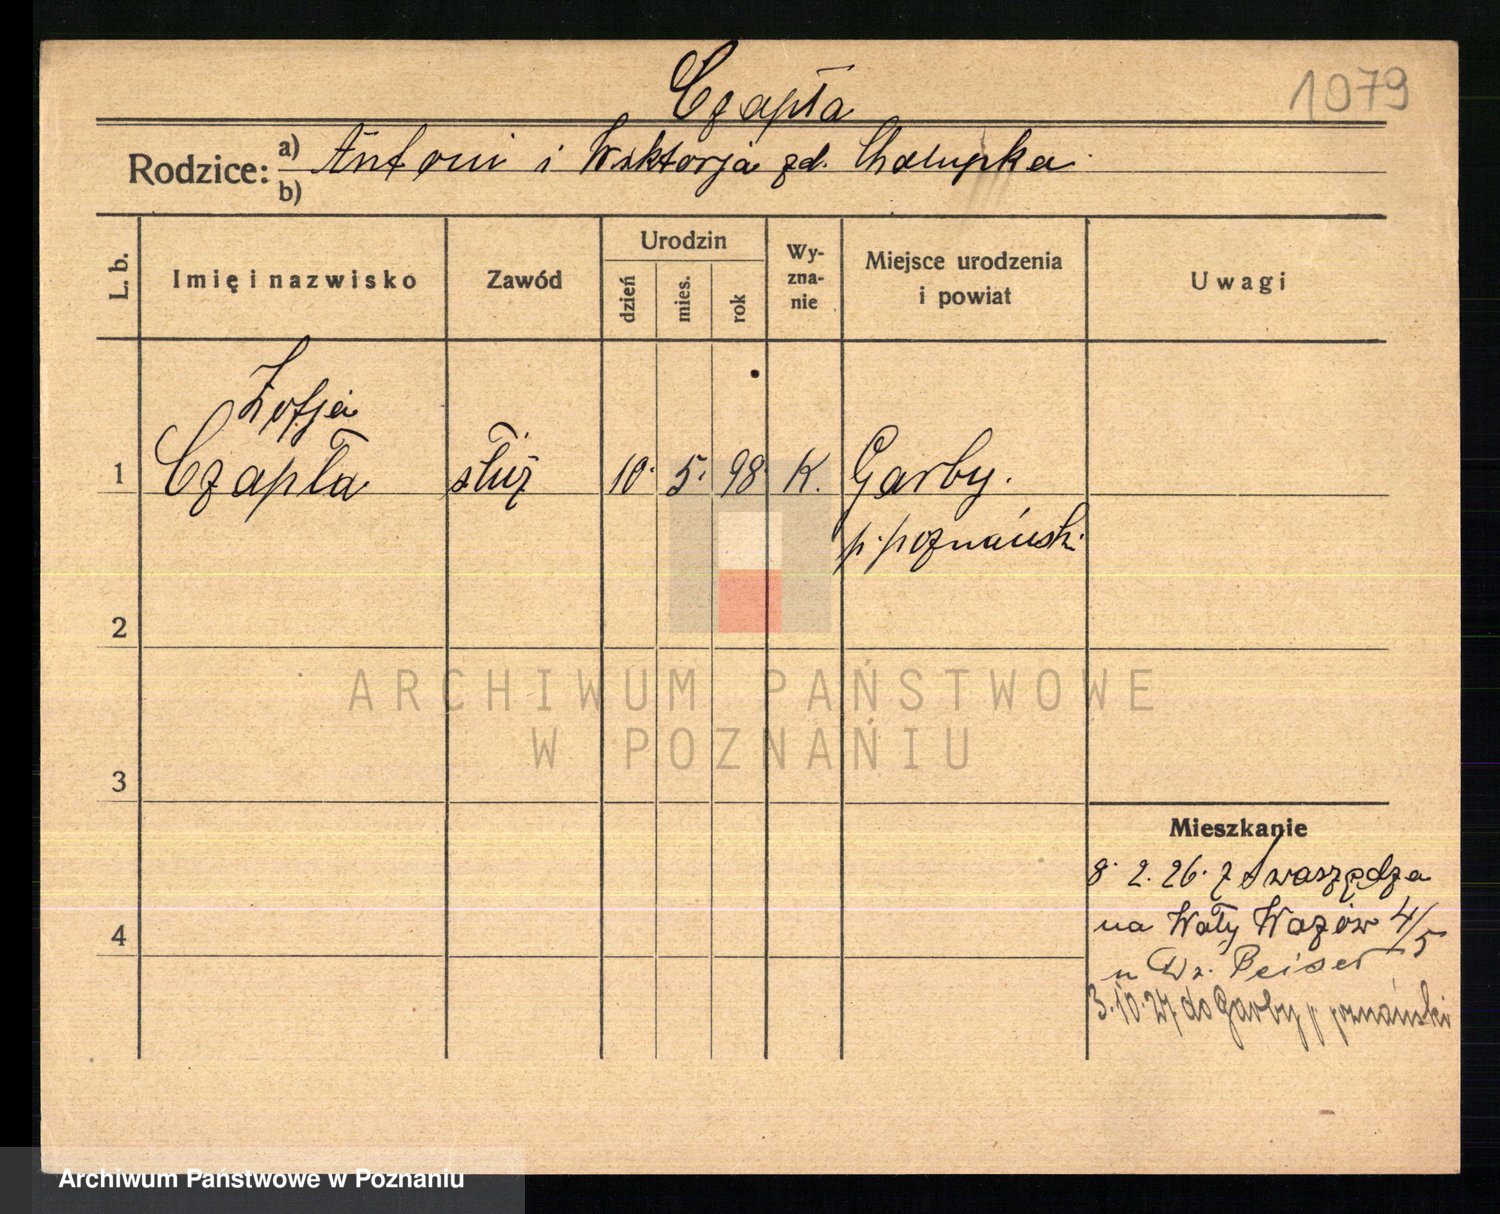 Czapła
1079
Rodzice: a) Antoni i Wiktorja zd. Chałupka
b)
L. b.
Imię i nazwisko
Zawód
Urodzin
dzień
mies.
rok
Wy-
zna-
nie
Miejsce urodzenia
i powiat
Uwagi
Zofja
1 Czapła służ 10. 5. 98 K. Garby.
p. poznańsk.
2
ARCHIWUM PAŃSTWOWE
W POZNANIU
3
Mieszkanie
8. 2. 26. z Swarzędza
4
na Wały Wazów 4/5
u Dr. Beiser
3.10.27 do Garby p. poznański
Archiwum Państwowe w Poznaniu